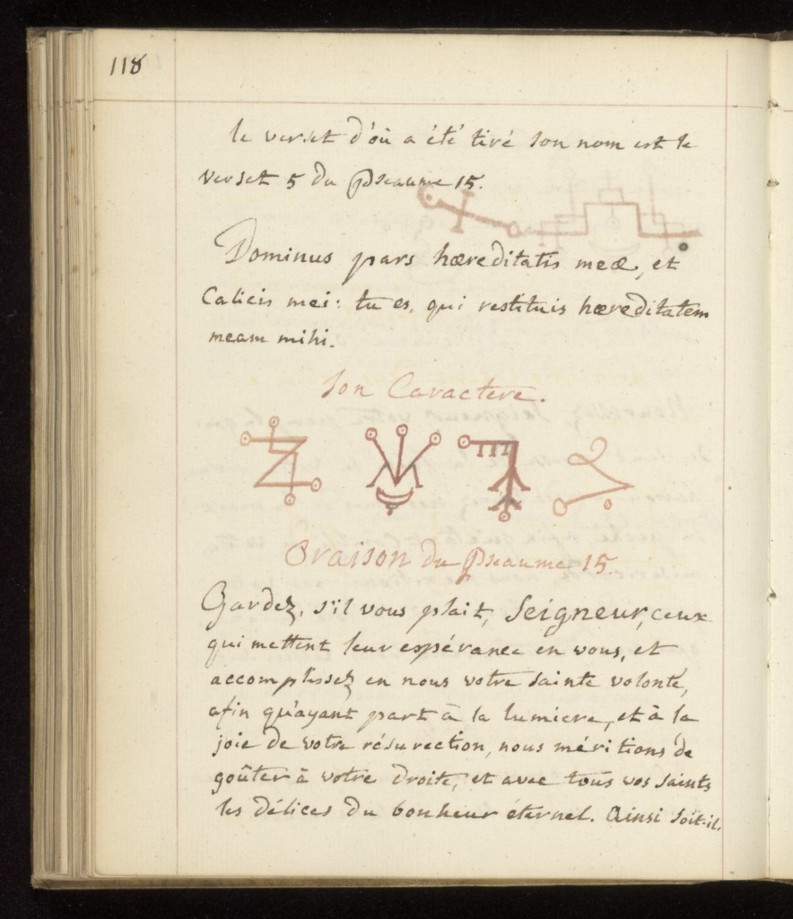 118
le verset d'où a été tiré son nom est le
verset 5 du Pseaume 15.
Dominus pars hæreditatis meæ, et
Calicis mei: tu es, qui restituis hæreditatem
meam mihi.
Son Caractere.
Oraison du Pseaume 15.
Gardez, s'il vous plait, Seigneur, ceux
qui mettent leur espérance en vous, et
accomplissez en nous votre sainte volonté,
afin qu'ayant part à la lumiere, et à la
joie de votre résurection, nous méritions de
goûter à votre droite, et avec tous vos saints
les délices du bonheur éternel. Ainsi soit-il.